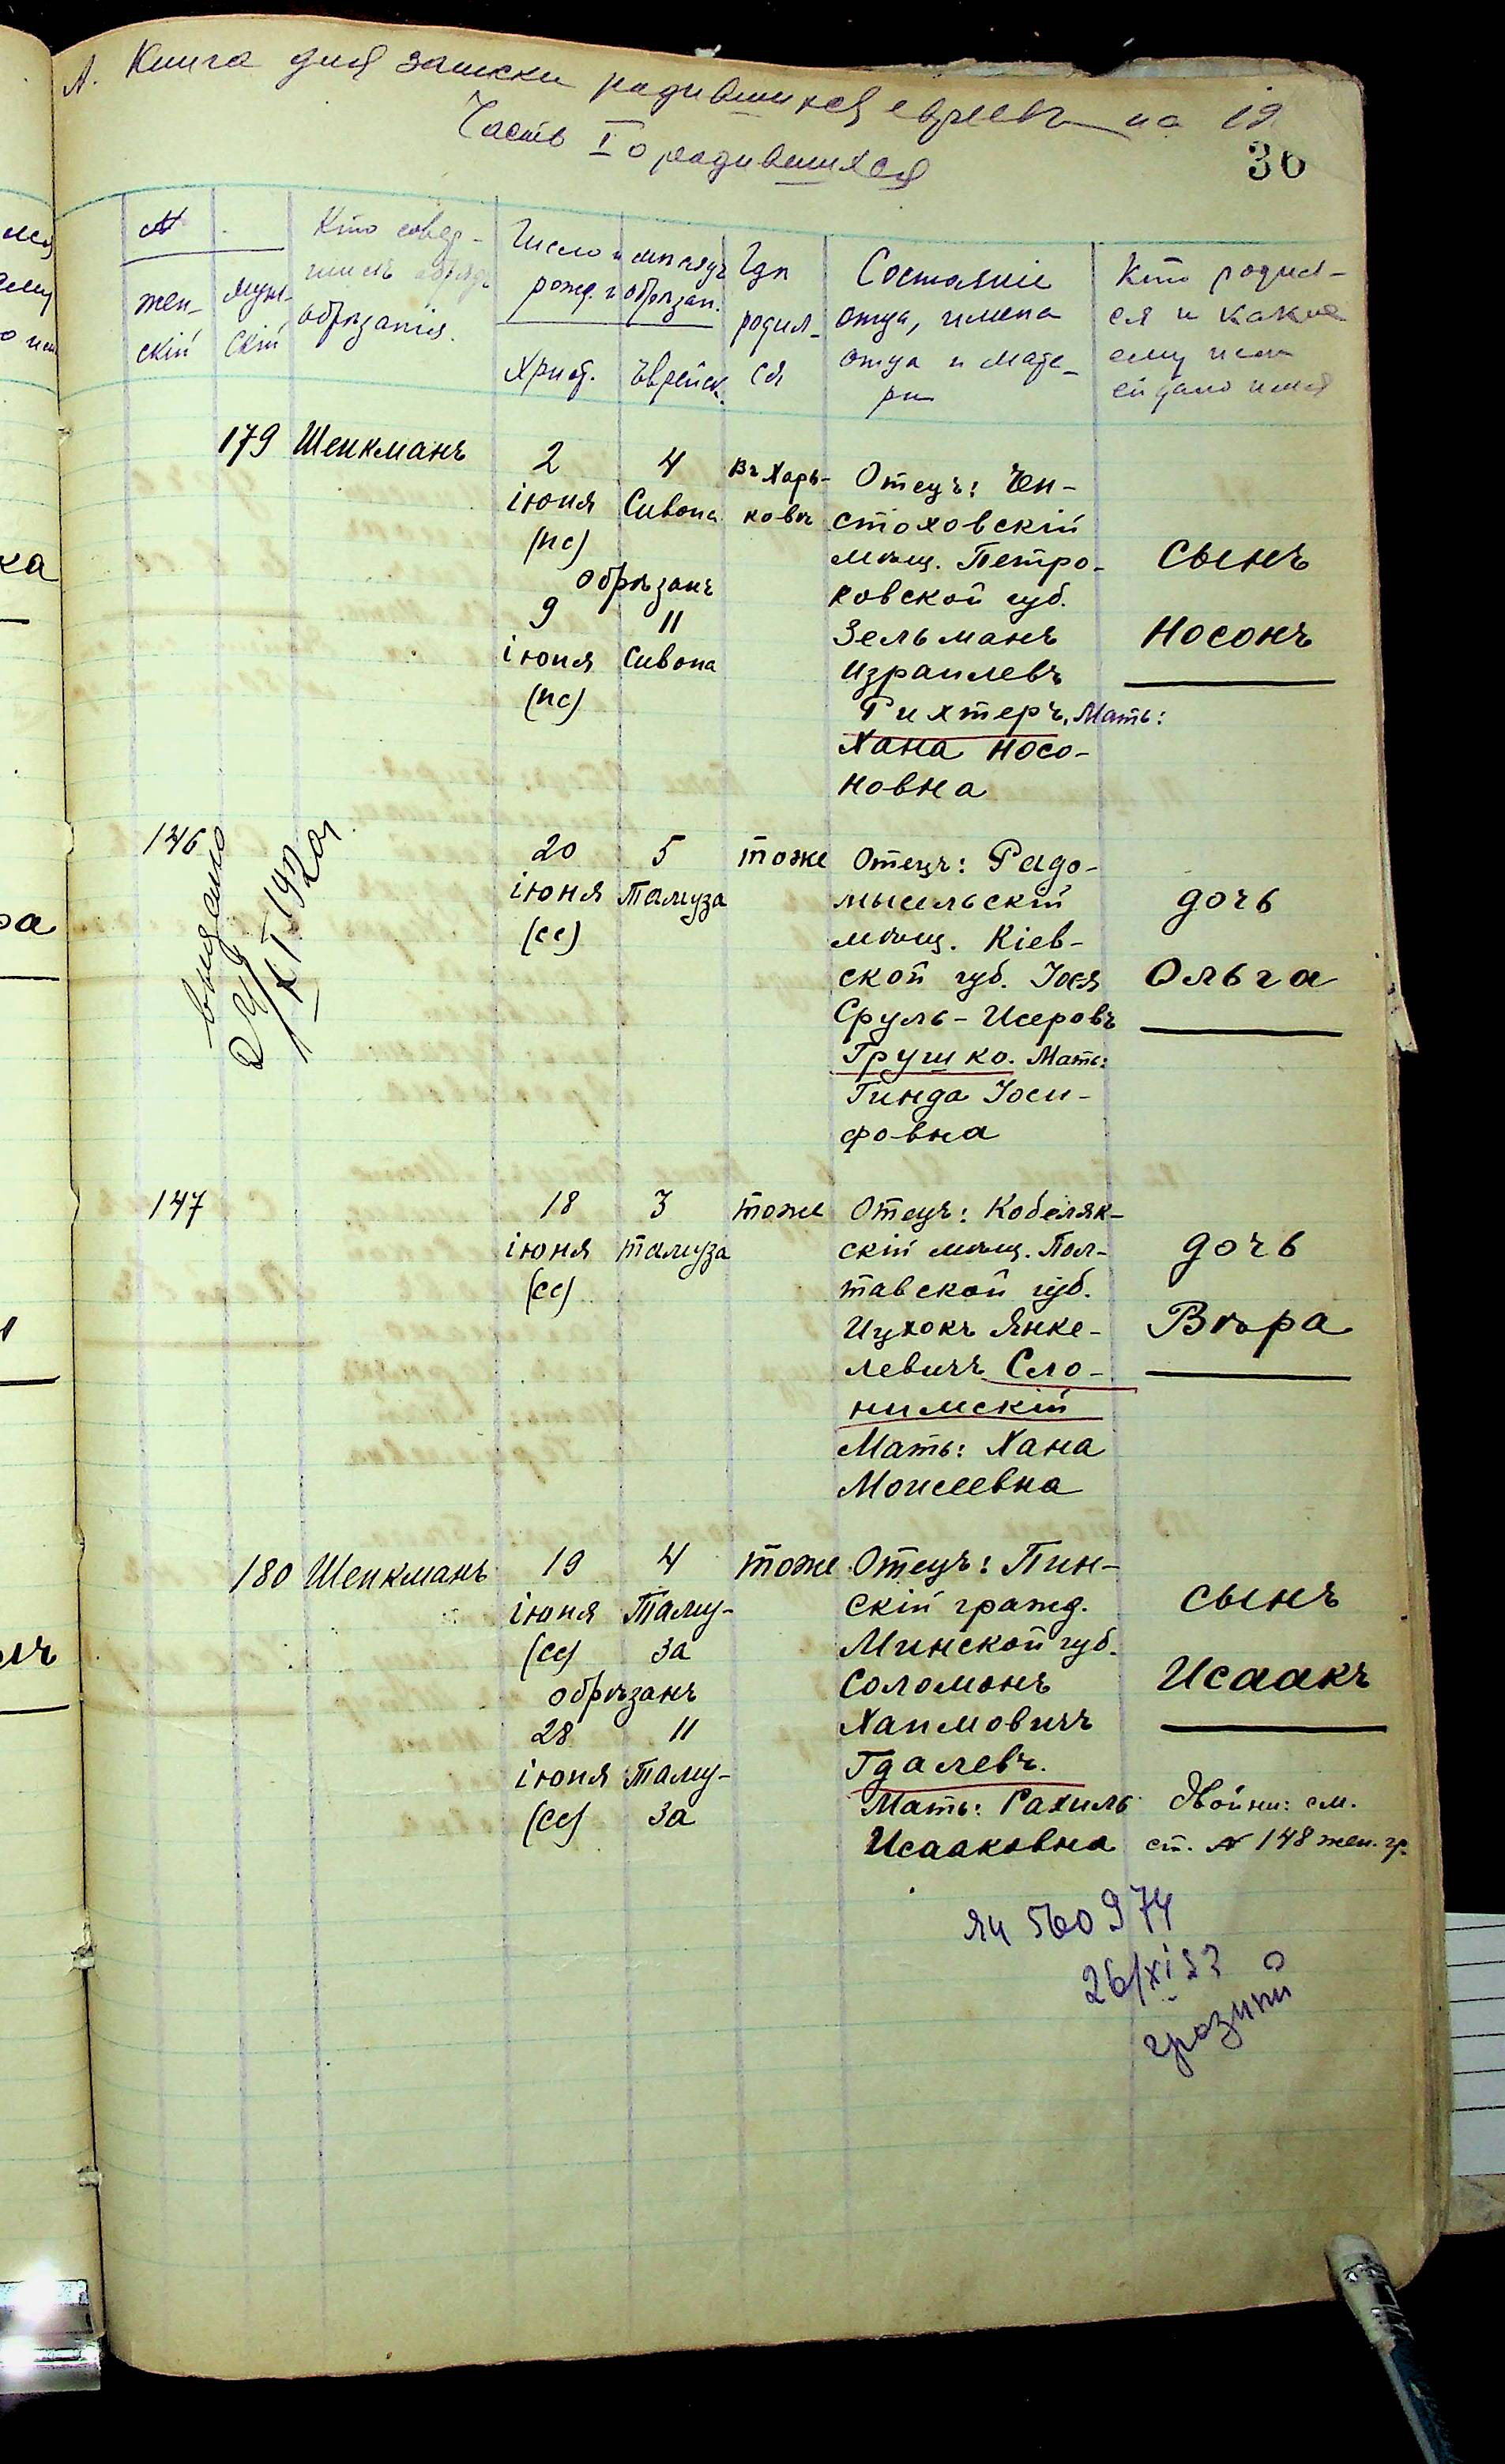 А. Книга для записки родившихся евреевъ на 19
Часть I о родившихся
36
№
жен-
скій
муж-
скій
Кто совер-
шилъ обрядъ
обрѣзанія.
Число и мѣсяцъ
рожд. и обрѣзан.
Христ.
Еврейск.
Гдѣ
родил-
ся
Состояніе
отца, имена
отца и мате-
ри
Кто родил-
ся и какое
ему или
ей дано имя
179 Шенкманъ
2
іюня
(нс)
4
Сивона
обрѣзанъ
9
іюня
(нс)
11
Сивона
въ Харь-
ковѣ
Отецъ: Чен-
стоховскій
мѣщ. Петро-
ковской губ.
Зельманъ
Израилевъ
Рихтеръ, Мать:
Хана Носо-
новна
сынъ
Носонъ
146
выдано
20
іюня
(сс)
5
Тамуза
тоже
Отецъ: Радо-
мысльскій
мѣщ. Кіев-
ской губ. Іося
Сруль-Исеровъ
Грушко. Мать:
Гинда Іоси-
фовна
дочь
Ольга
147
18
іюня
(сс)
3
тамуза
тоже
Отецъ: Кобеляк-
скій мѣщ. Пол-
тавской губ.
Ицхокъ Янке-
левичъ Сло-
нимскій
Мать: Хана
Моисеевна
дочь
Вѣра
180 Шенкманъ
19
іюня
(сс)
4
Таму-
за
обрѣзанъ
28
іюня
(сс)
11
Таму-
за
тоже
Отецъ: Пин-
скій гражд.
Минской губ.
Соломонъ
Хаимовичъ
Гдалевъ.
Мать: Рахиль
Исааковна
сынъ
Исаакъ
Двойни: см.
ст. № 148 жен. гр.
560974
26/XI